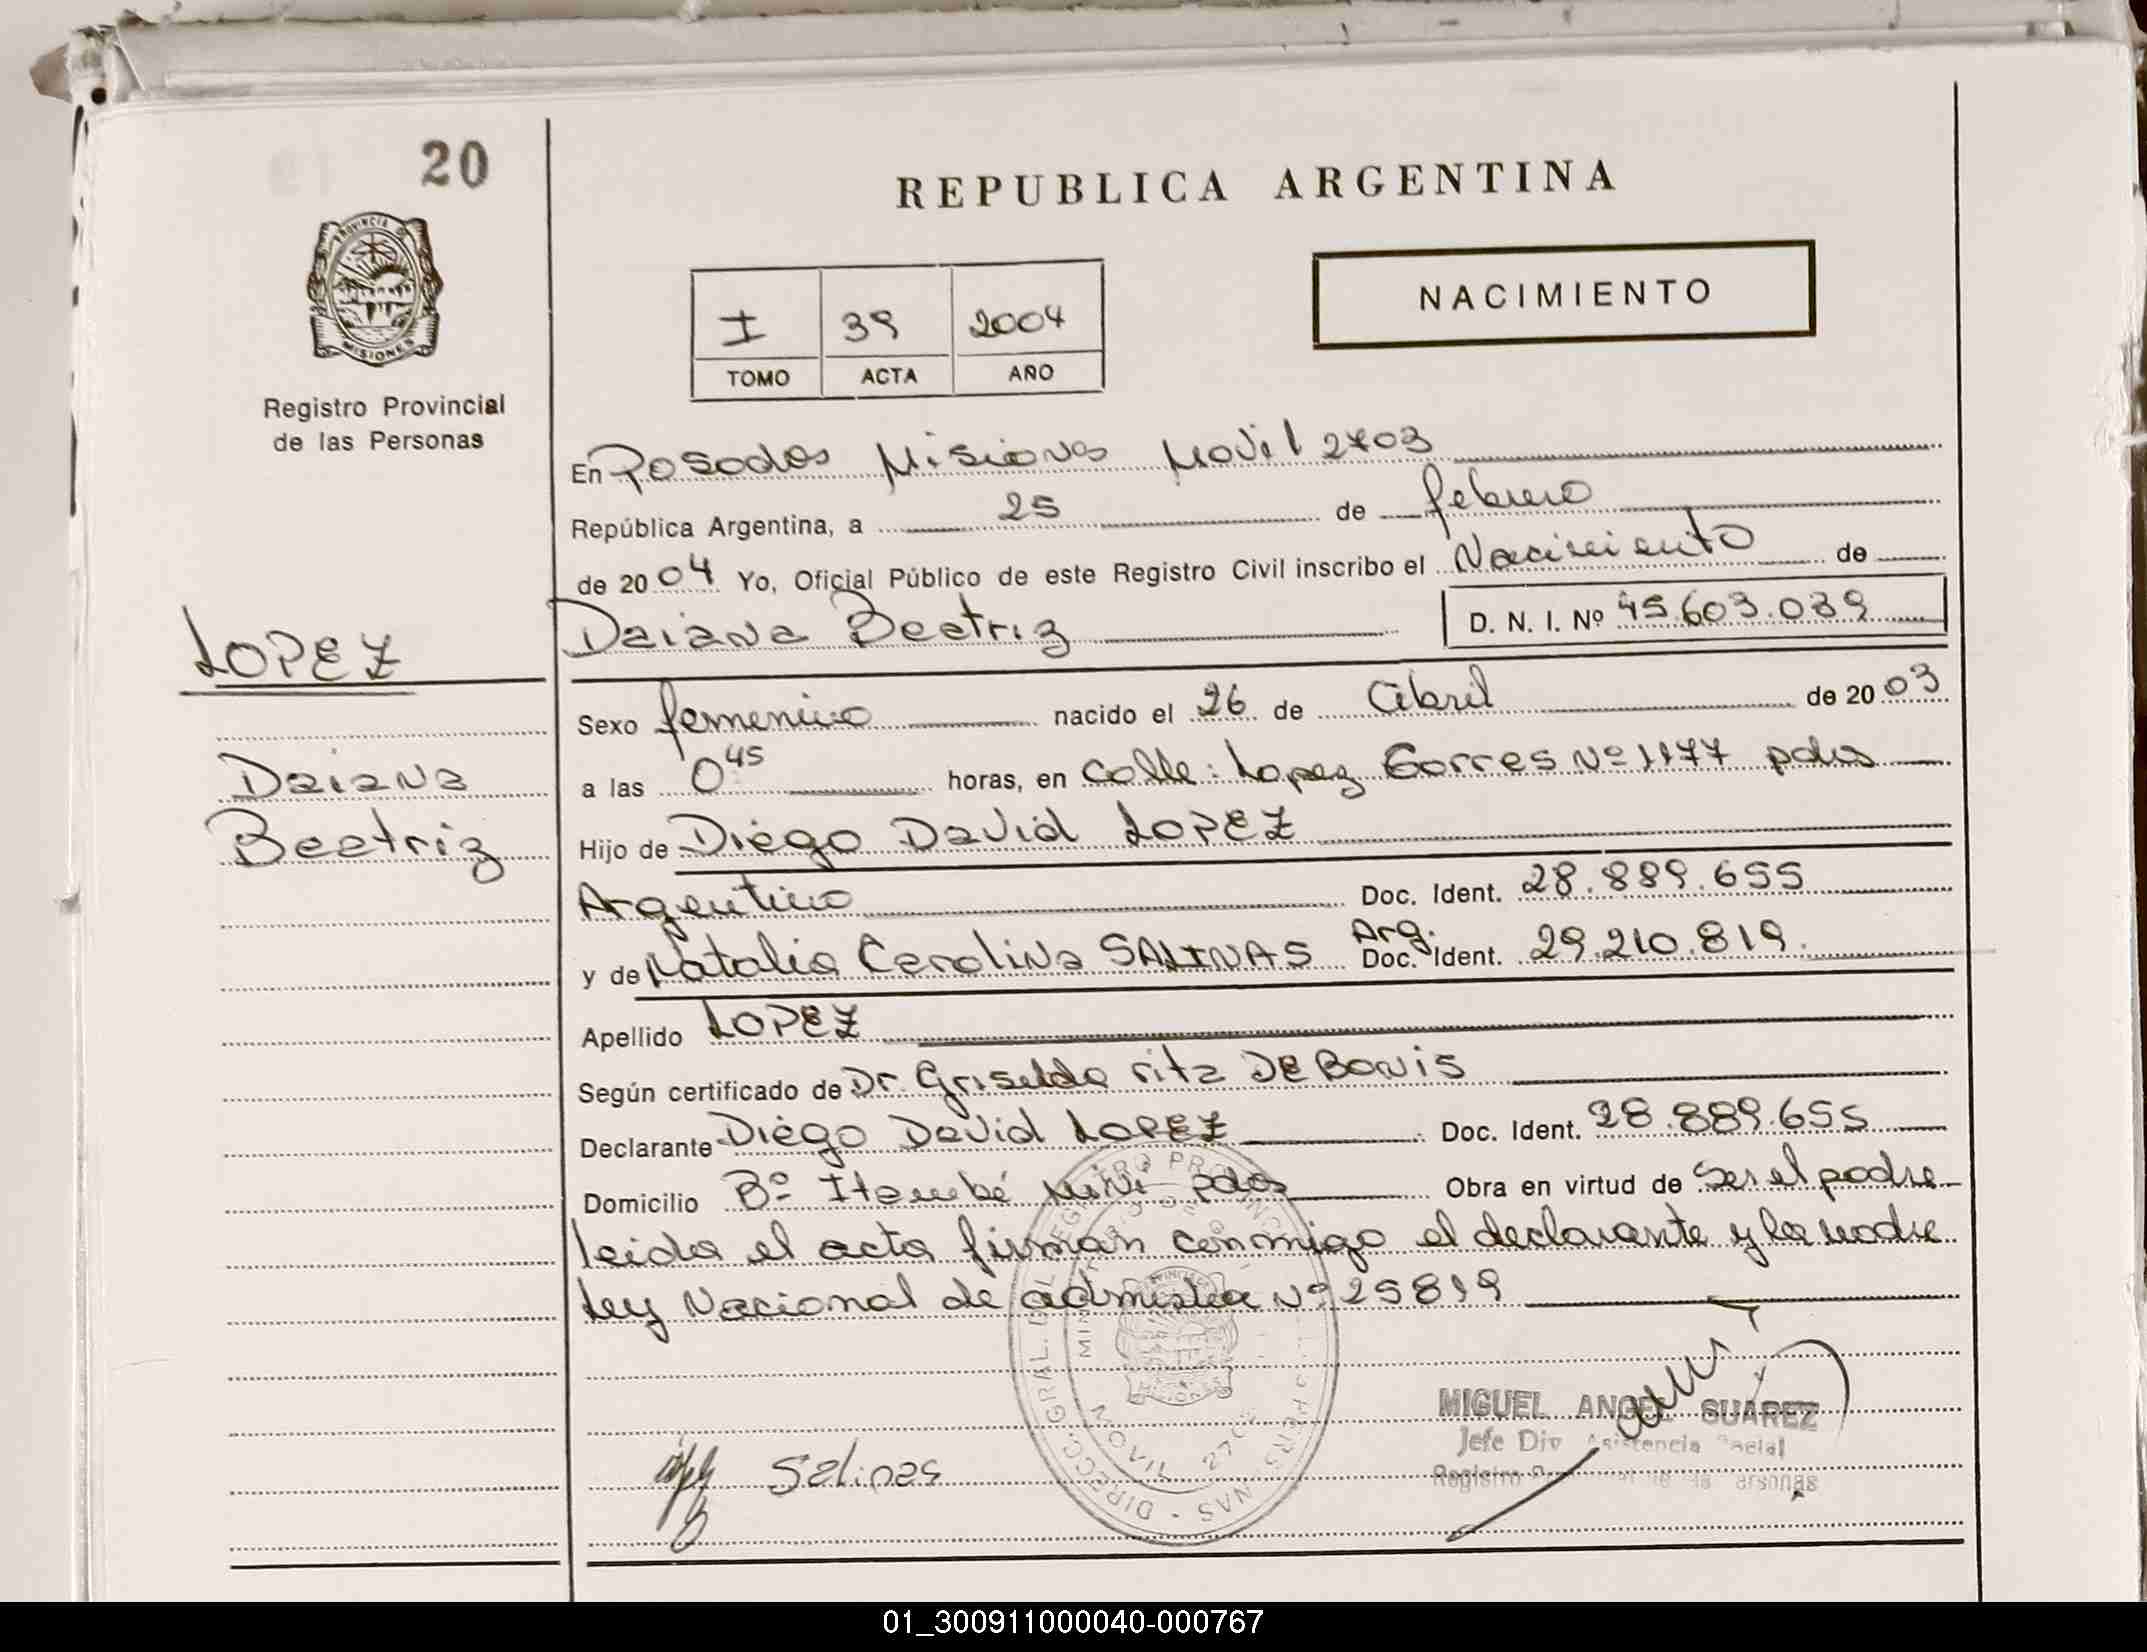 20
REPUBLICA ARGENTINA
PROVINCIA DE
MISIONES
NACIMIENTO
I 39 2004
TOMO ACTA AÑO
Registro Provincial
de las Personas
En Posadas Misiones Movil 2703
República Argentina, a 25 de febrero
de 2004 Yo, Oficial Público de este Registro Civil inscribo el Nacimiento de
Daiana Beatriz D. N. I. Nº 45.603.039
LOPEZ
Daiana
Beatriz
Sexo femenino nacido el 26 de Abril de 2003
a las 0 45 horas, en calle: Lopez Torres Nº 1177 pdas
Hijo de Diego David LOPEZ
Argentino Doc. Ident. 28.889.655
y de Natalia Carolina SALINAS Arg. Doc. Ident. 29.210.819.
Apellido LOPEZ
Según certificado de Dr. Griselda rita DE BONIS
Declarante Diego David LOPEZ Doc. Ident. 28.889.655
Domicilio Bº Itaembé Mini pdas Obra en virtud de Ser el padre
leida el acta firman conmigo el declarante y la madre
Ley Nacional de admistia Nº 25819
MIGUEL ANGEL SUAREZ
Jefe Div Asistencia Social
Registro
Salinas
01_300911000040-000767